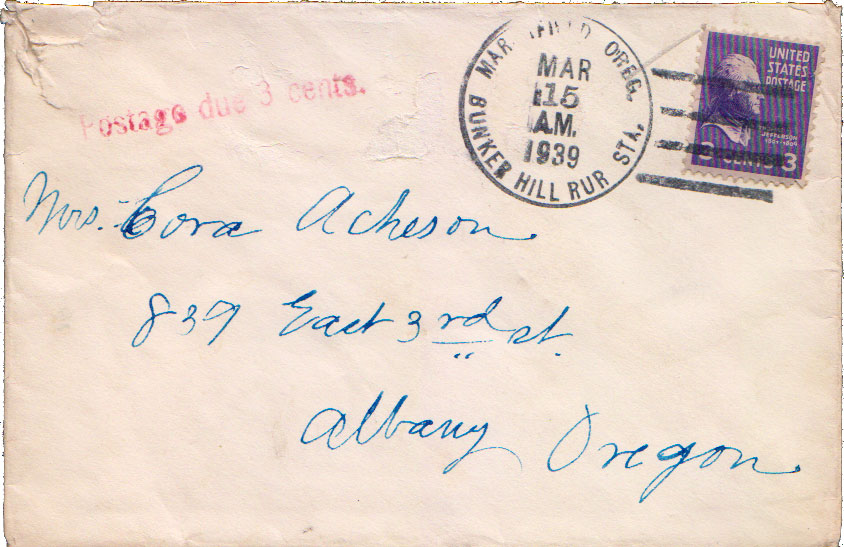 Postage due 3 cents.
MARSHFIELD, OREG.
MAR
15
A.M.
1939
BUNKER HILL RUR STA.
UNITED
STATES
POSTAGE
JEFFERSON
1801-1809
3 3
Mrs. Cora Acheson
839 East 3rd st.
Albany Oregon